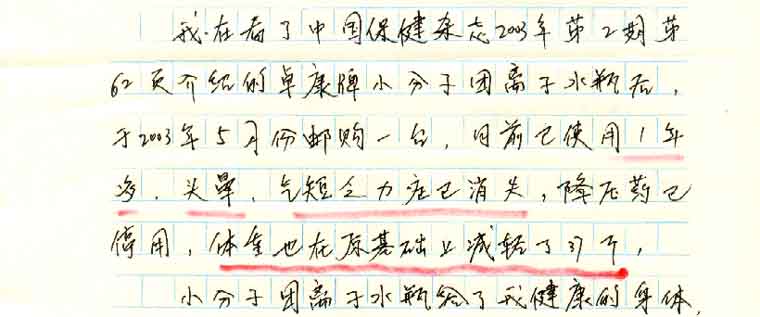 我在看了中国保健杂志2003年第2期第
62页介绍的卓康牌小分子团离子水瓶后，
于2003年5月份邮购一台，目前已使用1年
多，头晕、气短乏力症已消失，降压药已
停用，体重也在原基础上减轻了37斤，
小分子团离子水瓶给了我健康的身体，